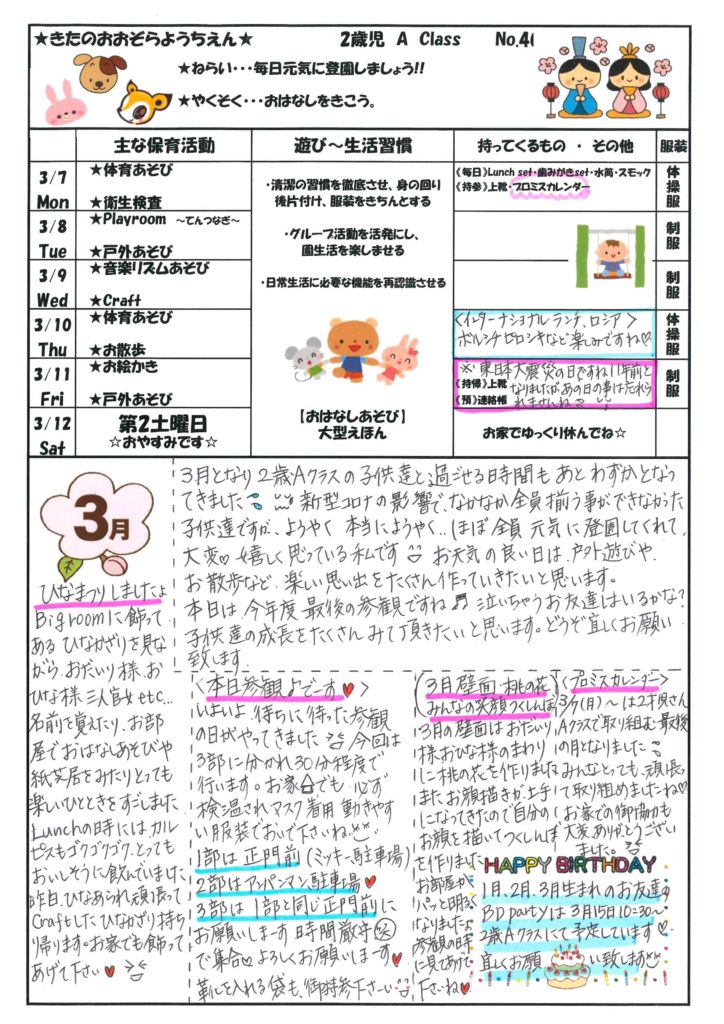 ★きたのおおぞらようちえん★ 2歳児 A Class No.4
★ねらい・・・毎日元気に登園しましょう!!
★やくそく・・・おはなしをきこう。
主な保育活動 遊び～生活習慣 持ってくるもの ・ その他 服装
3/7 Mon
★体育あそび
★衛生検査
3/8 Tue
★Playroom ～てんつなぎ～
★戸外あそび
3/9 Wed
★音楽リズムあそび
★Craft
3/10 Thu
★体育あそび
★お散歩
3/11 Fri
★お絵かき
★戸外あそび
3/12 Sat
第2土曜日
☆おやすみです☆
・清潔の習慣を徹底させ、身の回り
後片付け、服装をきちんとする
・グループ活動を活発にし、
園生活を楽しませる
・日常生活に必要な機能を再認識させる
【おはなしあそび】
大型えほん
《毎日》Lunch set・歯みがきset・水筒・スモック
《持参》上靴・プロミスカレンダー
<インターナショナルランチ、ロシア>
ボルシチピロシキなど楽しみですね♡
※東日本大震災の日ですね 11年前と
《持帰》上靴 なりましたがあの日の事は忘れら
《預》連絡帳 れませんね
お家でゆっくり休んでね☆
体操服
制服
制服
体操服
制服
3月
3月となり2歳Aクラスの子供達と過ごせる時間もあとわずかとなっ
てきました 新型コロナの影響で、なかなか全員揃う事ができなかった
子供達ですが、ようやく本当にようやく..ほぼ全員元気に登園してくれて、
大変♡嬉しく思っている私です お天気の良い日は、戸外遊びや、
お散歩など、楽しい思い出をたくさん作っていきたいと思います。
本日は今年度最後の参観ですね♬ 泣いちゃうお友達はいるかな?
子供達の成長をたくさんみて頂きたいと思います。どうぞ宜しくお願い
致します
ひなまつりしましたよ
Big roomに飾って
ある ひなかざりを見な
がら、おだいり様、お
ひな様 三人官女etc...
名前を覚えたり、お部
屋でおはなしあそびや
紙芝居をみたりとっても
楽しいひとときをすごしました
Lunchの時にはカル
ピスもゴクゴクゴク、とっても
おいしそうに飲んでいました
昨日、ひなあられ頑張って
Craftしたひなかざり持ち
帰ります。お家でも飾って
あげて下さい♥
<本日参観よでーす♥>
いよいよ待ちに待った参観
の日がやってきました 今回は
3部に分かれ30分程度で
行います。お家でも必ず
検温されマスク着用 動きやす
い服装でおいで下さいね
1部は正門前(ミッキー駐車場)
2部はアンパンマン駐車場♥
3部は1部と同じ正門前に
お願いしまーす 時間厳守
で集合♡よろしくお願いしまーす♥
靴を入れる袋も、御持参下さーい
(3月壁面・桃の花
みんなの笑顔つくしんぼ)
3月の壁面はおだいり
様、おひな様のまわり
に桃の花を作りました
また、お顔描きが上手
になってきたので自分の
お顔を描いてつくしんぼ
を作りました
お部屋が
パッと明るく
なりましたよ
参観の時
に見てあげて
下さいね♥
<プロミスカレンダー>
3/7(月)～は2才頑さん
Aクラスで取り組む最後
の月となりました
みんなとっても、頑張っ
て取り組めましたね♡
お家での御協力も
大変、ありがとうござい
ました。
HAPPY BIRTHDAY
1月、2月、3月生まれのお友達の
BD partyは3月15日10:30～
2歳Aクラスにて予定しています♡
宜しくお願い致します